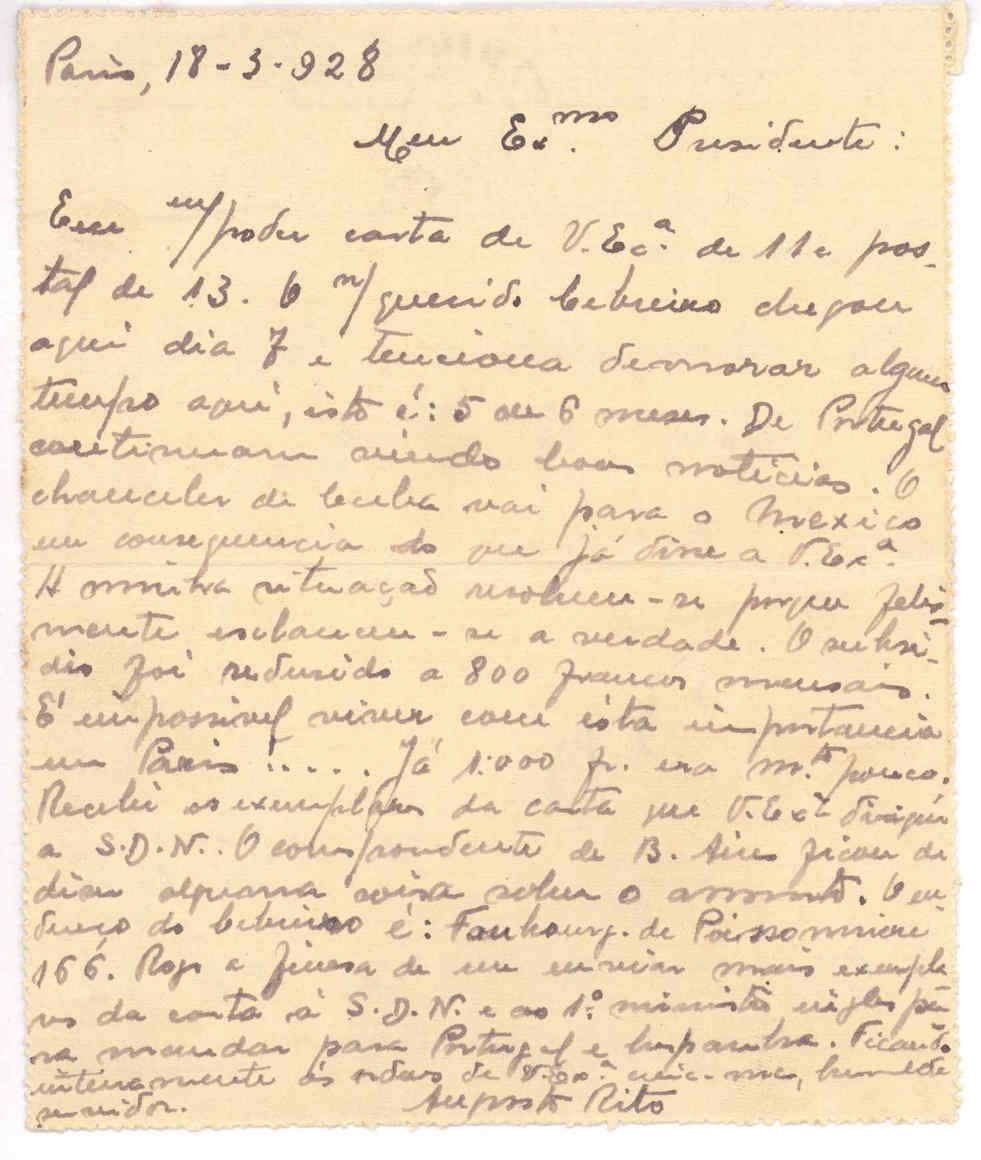 Paris, 18-3-928
Meu Ex.mo Presidente:
Em m/poder carta de V.Ex.ª de 11 e pos-
tal de 13. O n/querido Cebreiro chegou
aqui dia 7 e tenciona demorar algum
tempo aqui, isto é: 5 ou 6 meses. De Portugal
continuam vindo boas noticias. O
chanceler de Cuba vai para o Mexico
em consequencia do que já disse a V.Ex.ª
A minha situação resolveu-se porque feliz-
mente esclareceu-se a verdade. O subsi-
dio foi redusido a 800 francos mensais.
É impossivel viver com ésta importancia
em Paris!.... Já 1.000 fr. era m.to pouco.
Recebi os exemplares da carta que V.Exª dirigiu
a S.D.N.. O correspondente de B. Aires ficou de
diser alguma coisa sobre o assunto. O en-
dereço do Cebreiro é: Faubourg. de Poissonniere
166. Rogo a finesa de me enviar mais exempla
res da carta á S.D.N. e ao 1.º ministro inglês pa-
ra mandar para Portugal e Espanha. Ficando
inteiramente ás ordens de V.Ex.ª humilde
servidor. Augusto Rito